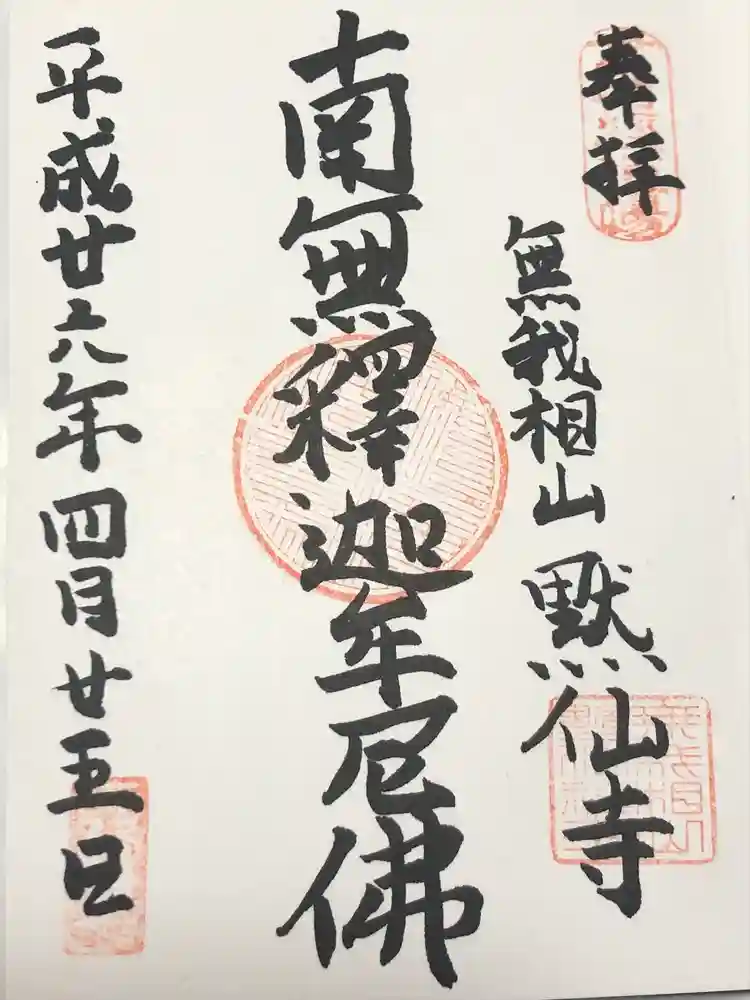 奉拝
無我相山 黙仙寺
南無釋迦牟尼佛
平成廿六年四月廿五日